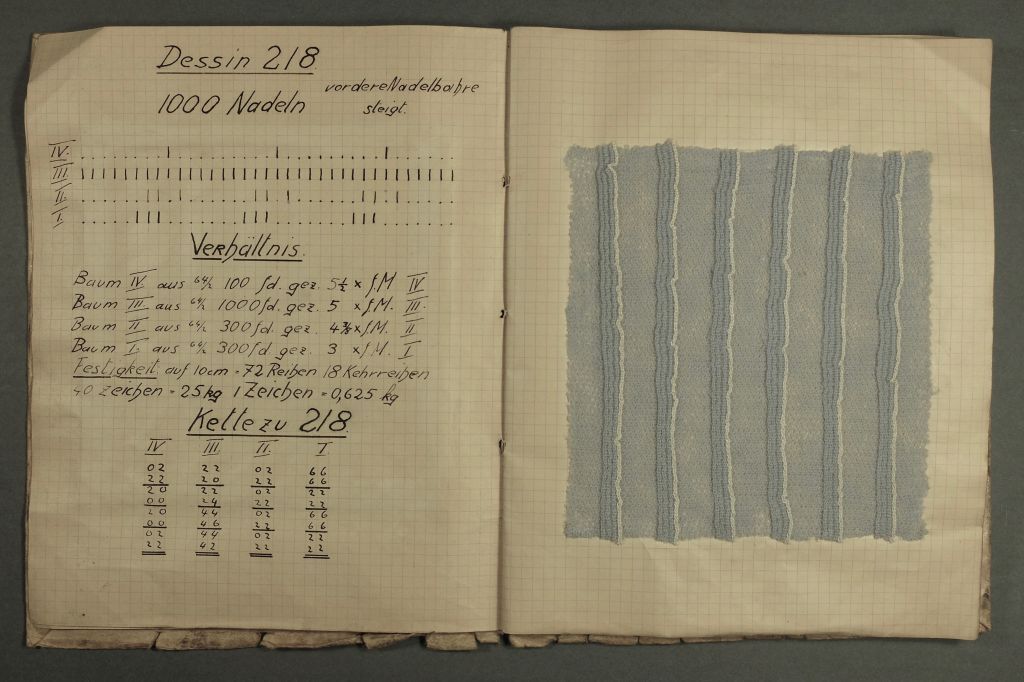 Dessin 218
1000 Nadeln vordere Nadelbahre
steigt.
IV.
III.
II.
I.
Verhältnis.
Baum IV aus 64/2 100 fd. gez. 5½ x f.M IV
Baum III. aus 64/2 1000 fd. gez. 5 x f.M. III.
Baum II aus 64/2 300 fd. gez. 4⅞ x f.M. II
Baum I. aus 64/2 300 fd. gez. 3 x f.M. I
Festigkeit auf 10cm = 72 Reihen 18 Kehrreihen
40 Zeichen = 25 kg 1 Zeichen = 0,625 kg
Kette zu 218.
IV III. II. I.
02 22 02 66
22 20 22 66
20 22 02 22
00 24 22 22
20 44 02 66
00 46 22 66
02 44 02 22
22 42 22 22